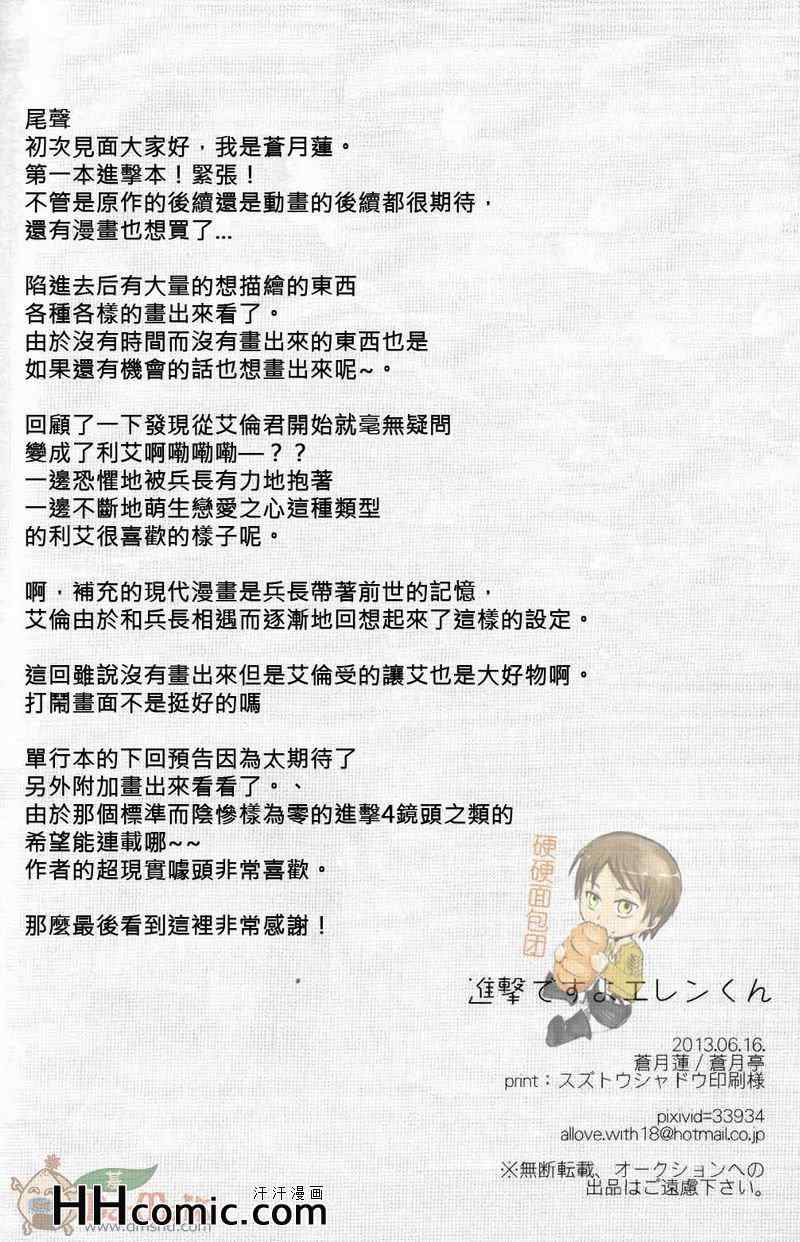 尾聲
初次見面大家好，我是蒼月蓮。
第一本進擊本！緊張！
不管是原作的後續還是動畫的後續都很期待，
還有漫畫也想買了...
陷進去后有大量的想描繪的東西
各種各樣的畫出來看了。
由於沒有時間而沒有畫出來的東西也是
如果還有機會的話也想畫出來呢~。
回顧了一下發現從艾倫君開始就毫無疑問
變成了利艾啊嘞嘞嘞—？？
一邊恐懼地被兵長有力地抱著
一邊不斷地萌生戀愛之心這種類型
的利艾很喜歡的樣子呢。
啊，補充的現代漫畫是兵長帶著前世的記憶，
艾倫由於和兵長相遇而逐漸地回想起來了這樣的設定。
這回雖說沒有畫出來但是艾倫受的讓艾也是大好物啊。
打鬧畫面不是挺好的嗎
單行本的下回預告因為太期待了
另外附加畫出來看看了。、
由於那個標準而陰慘樣為零的進擊4鏡頭之類的
希望能連載哪~~
作者的超現實噱頭非常喜歡。
那麼最後看到這裡非常感謝！
硬硬面包团
進撃ですよエレンくん
2013.06.16.
蒼月蓮 / 蒼月亭
print：スズトウシャドウ印刷様
pixivid=33934
allove.with18@hotmail.co.jp
※無断転載、オークションへの
出品はご遠慮下さい。
汗汗漫画
HHcomic.com